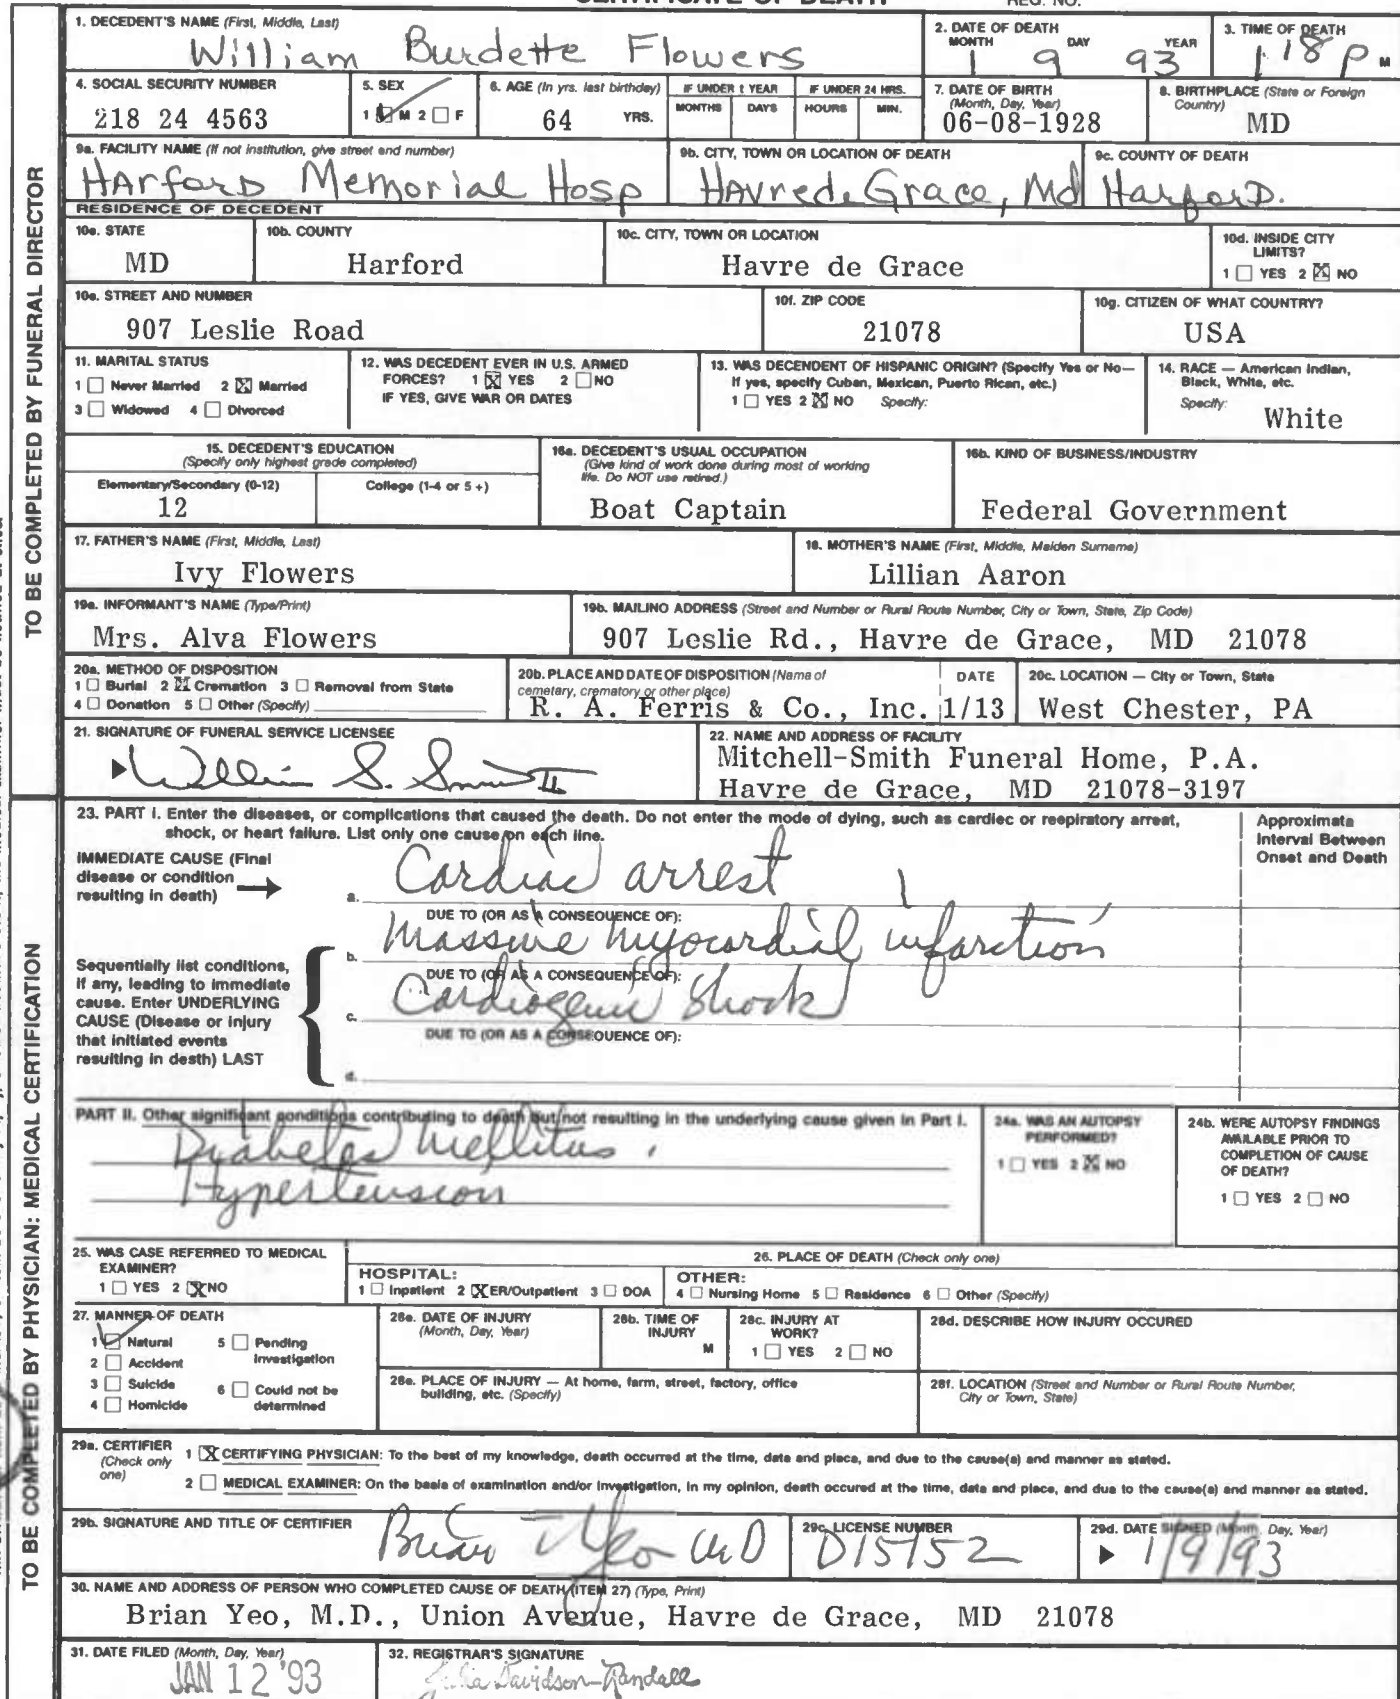 CERTIFICATE OF DEATH REG. NO.
1. DECEDENT'S NAME (First, Middle, Last) William Burdette Flowers
2. DATE OF DEATH MONTH DAY YEAR 1 9 93
3. TIME OF DEATH 1:18 P M
4. SOCIAL SECURITY NUMBER 218 24 4563
5. SEX 1 ☑ M 2 ☐ F
6. AGE (In yrs. last birthday) 64 YRS.
IF UNDER 1 YEAR MONTHS DAYS
IF UNDER 24 HRS. HOURS MIN.
7. DATE OF BIRTH (Month, Day, Year) 06-08-1928
8. BIRTHPLACE (State or Foreign Country) MD
9a. FACILITY NAME (If not institution, give street and number) HArforD Memorial Hosp
9b. CITY, TOWN OR LOCATION OF DEATH HAvre de Grace, Md
9c. COUNTY OF DEATH HarforD.
TO BE COMPLETED BY FUNERAL DIRECTOR
RESIDENCE OF DECEDENT
10a. STATE MD
10b. COUNTY Harford
10c. CITY, TOWN OR LOCATION Havre de Grace
10d. INSIDE CITY LIMITS? 1 ☐ YES 2 ☒ NO
10e. STREET AND NUMBER 907 Leslie Road
10f. ZIP CODE 21078
10g. CITIZEN OF WHAT COUNTRY? USA
11. MARITAL STATUS
1 ☐ Never Married 2 ☒ Married
3 ☐ Widowed 4 ☐ Divorced
12. WAS DECEDENT EVER IN U.S. ARMED FORCES? 1 ☒ YES 2 ☐ NO
IF YES, GIVE WAR OR DATES
13. WAS DECENDENT OF HISPANIC ORIGIN? (Specify Yes or No— If yes, specify Cuban, Mexican, Puerto Rican, etc.)
1 ☐ YES 2 ☒ NO Specify:
14. RACE — American Indian, Black, White, etc. Specify: White
15. DECEDENT'S EDUCATION (Specify only highest grade completed)
Elementary/Secondary (0-12) 12
College (1-4 or 5 +)
16a. DECEDENT'S USUAL OCCUPATION (Give kind of work done during most of working life. Do NOT use retired.) Boat Captain
16b. KIND OF BUSINESS/INDUSTRY Federal Government
17. FATHER'S NAME (First, Middle, Last) Ivy Flowers
18. MOTHER'S NAME (First, Middle, Maiden Surname) Lillian Aaron
19a. INFORMANT'S NAME (Type/Print) Mrs. Alva Flowers
19b. MAILING ADDRESS (Street and Number or Rural Route Number, City or Town, State, Zip Code) 907 Leslie Rd., Havre de Grace, MD 21078
20a. METHOD OF DISPOSITION
1 ☐ Burial 2 ☒ Cremation 3 ☐ Removal from State
4 ☐ Donation 5 ☐ Other (Specify)
20b. PLACE AND DATE OF DISPOSITION (Name of cemetary, crematory or other place) R. A. Ferris & Co., Inc.
DATE 1/13
20c. LOCATION — City or Town, State West Chester, PA
21. SIGNATURE OF FUNERAL SERVICE LICENSEE William S. Smith II
22. NAME AND ADDRESS OF FACILITY
Mitchell-Smith Funeral Home, P.A.
Havre de Grace, MD 21078-3197
TO BE COMPLETED BY PHYSICIAN: MEDICAL CERTIFICATION
23. PART I. Enter the diseases, or complications that caused the death. Do not enter the mode of dying, such as cardiec or respiratory arrest,
shock, or heart failure. List only one cause on each line.
Approximata Interval Between Onset and Death
IMMEDIATE CAUSE (Final disease or condition resulting in death)
a. Cardiac arrest
DUE TO (OR AS A CONSEQUENCE OF):
b. Massive myocardial infarction
DUE TO (OR AS A CONSEQUENCE OF):
c. Cardiogenic Shock
DUE TO (OR AS A CONSEQUENCE OF):
d.
Sequentially list conditions, if any, leading to immediate cause. Enter UNDERLYING CAUSE (Disease or injury that initiated events resulting in death) LAST
PART II. Other significant conditions contributing to death but not resulting in the underlying cause given in Part I.
Diabetes Mellitus,
Hypertension
24a. WAS AN AUTOPSY PERFORMED? 1 ☐ YES 2 ☒ NO
24b. WERE AUTOPSY FINDINGS AVAILABLE PRIOR TO COMPLETION OF CAUSE OF DEATH? 1 ☐ YES 2 ☐ NO
25. WAS CASE REFERRED TO MEDICAL EXAMINER? 1 ☐ YES 2 ☒ NO
26. PLACE OF DEATH (Check only one)
HOSPITAL: 1 ☐ Inpatient 2 ☒ ER/Outpatient 3 ☐ DOA
OTHER: 4 ☐ Nursing Home 5 ☐ Residence 6 ☐ Other (Specify)
27. MANNER OF DEATH
1 ☑ Natural 5 ☐ Pending Investigation
2 ☐ Accident
3 ☐ Suicide 6 ☐ Could not be determined
4 ☐ Homicide
28a. DATE OF INJURY (Month, Day, Year)
28b. TIME OF INJURY M
28c. INJURY AT WORK? 1 ☐ YES 2 ☐ NO
28d. DESCRIBE HOW INJURY OCCURED
28e. PLACE OF INJURY — At home, farm, street, factory, office building, etc. (Specify)
28f. LOCATION (Street and Number or Rural Route Number, City or Town, State)
29a. CERTIFIER (Check only one)
1 ☒ CERTIFYING PHYSICIAN: To the best of my knowledge, death occurred at the time, date and place, and due to the cause(s) and manner as stated.
2 ☐ MEDICAL EXAMINER: On the basis of examination and/or investigation, in my opinion, death occured at the time, data and place, and due to the cause(s) and manner as stated.
29b. SIGNATURE AND TITLE OF CERTIFIER Brian Yeo MD
29c. LICENSE NUMBER D15152
29d. DATE SIGNED (Month, Day, Year) 1/9/93
30. NAME AND ADDRESS OF PERSON WHO COMPLETED CAUSE OF DEATH (ITEM 27) (Type, Print)
Brian Yeo, M.D., Union Avenue, Havre de Grace, MD 21078
31. DATE FILED (Month, Day, Year) JAN 12 '93
32. REGISTRAR'S SIGNATURE Julia Davidson-Randall